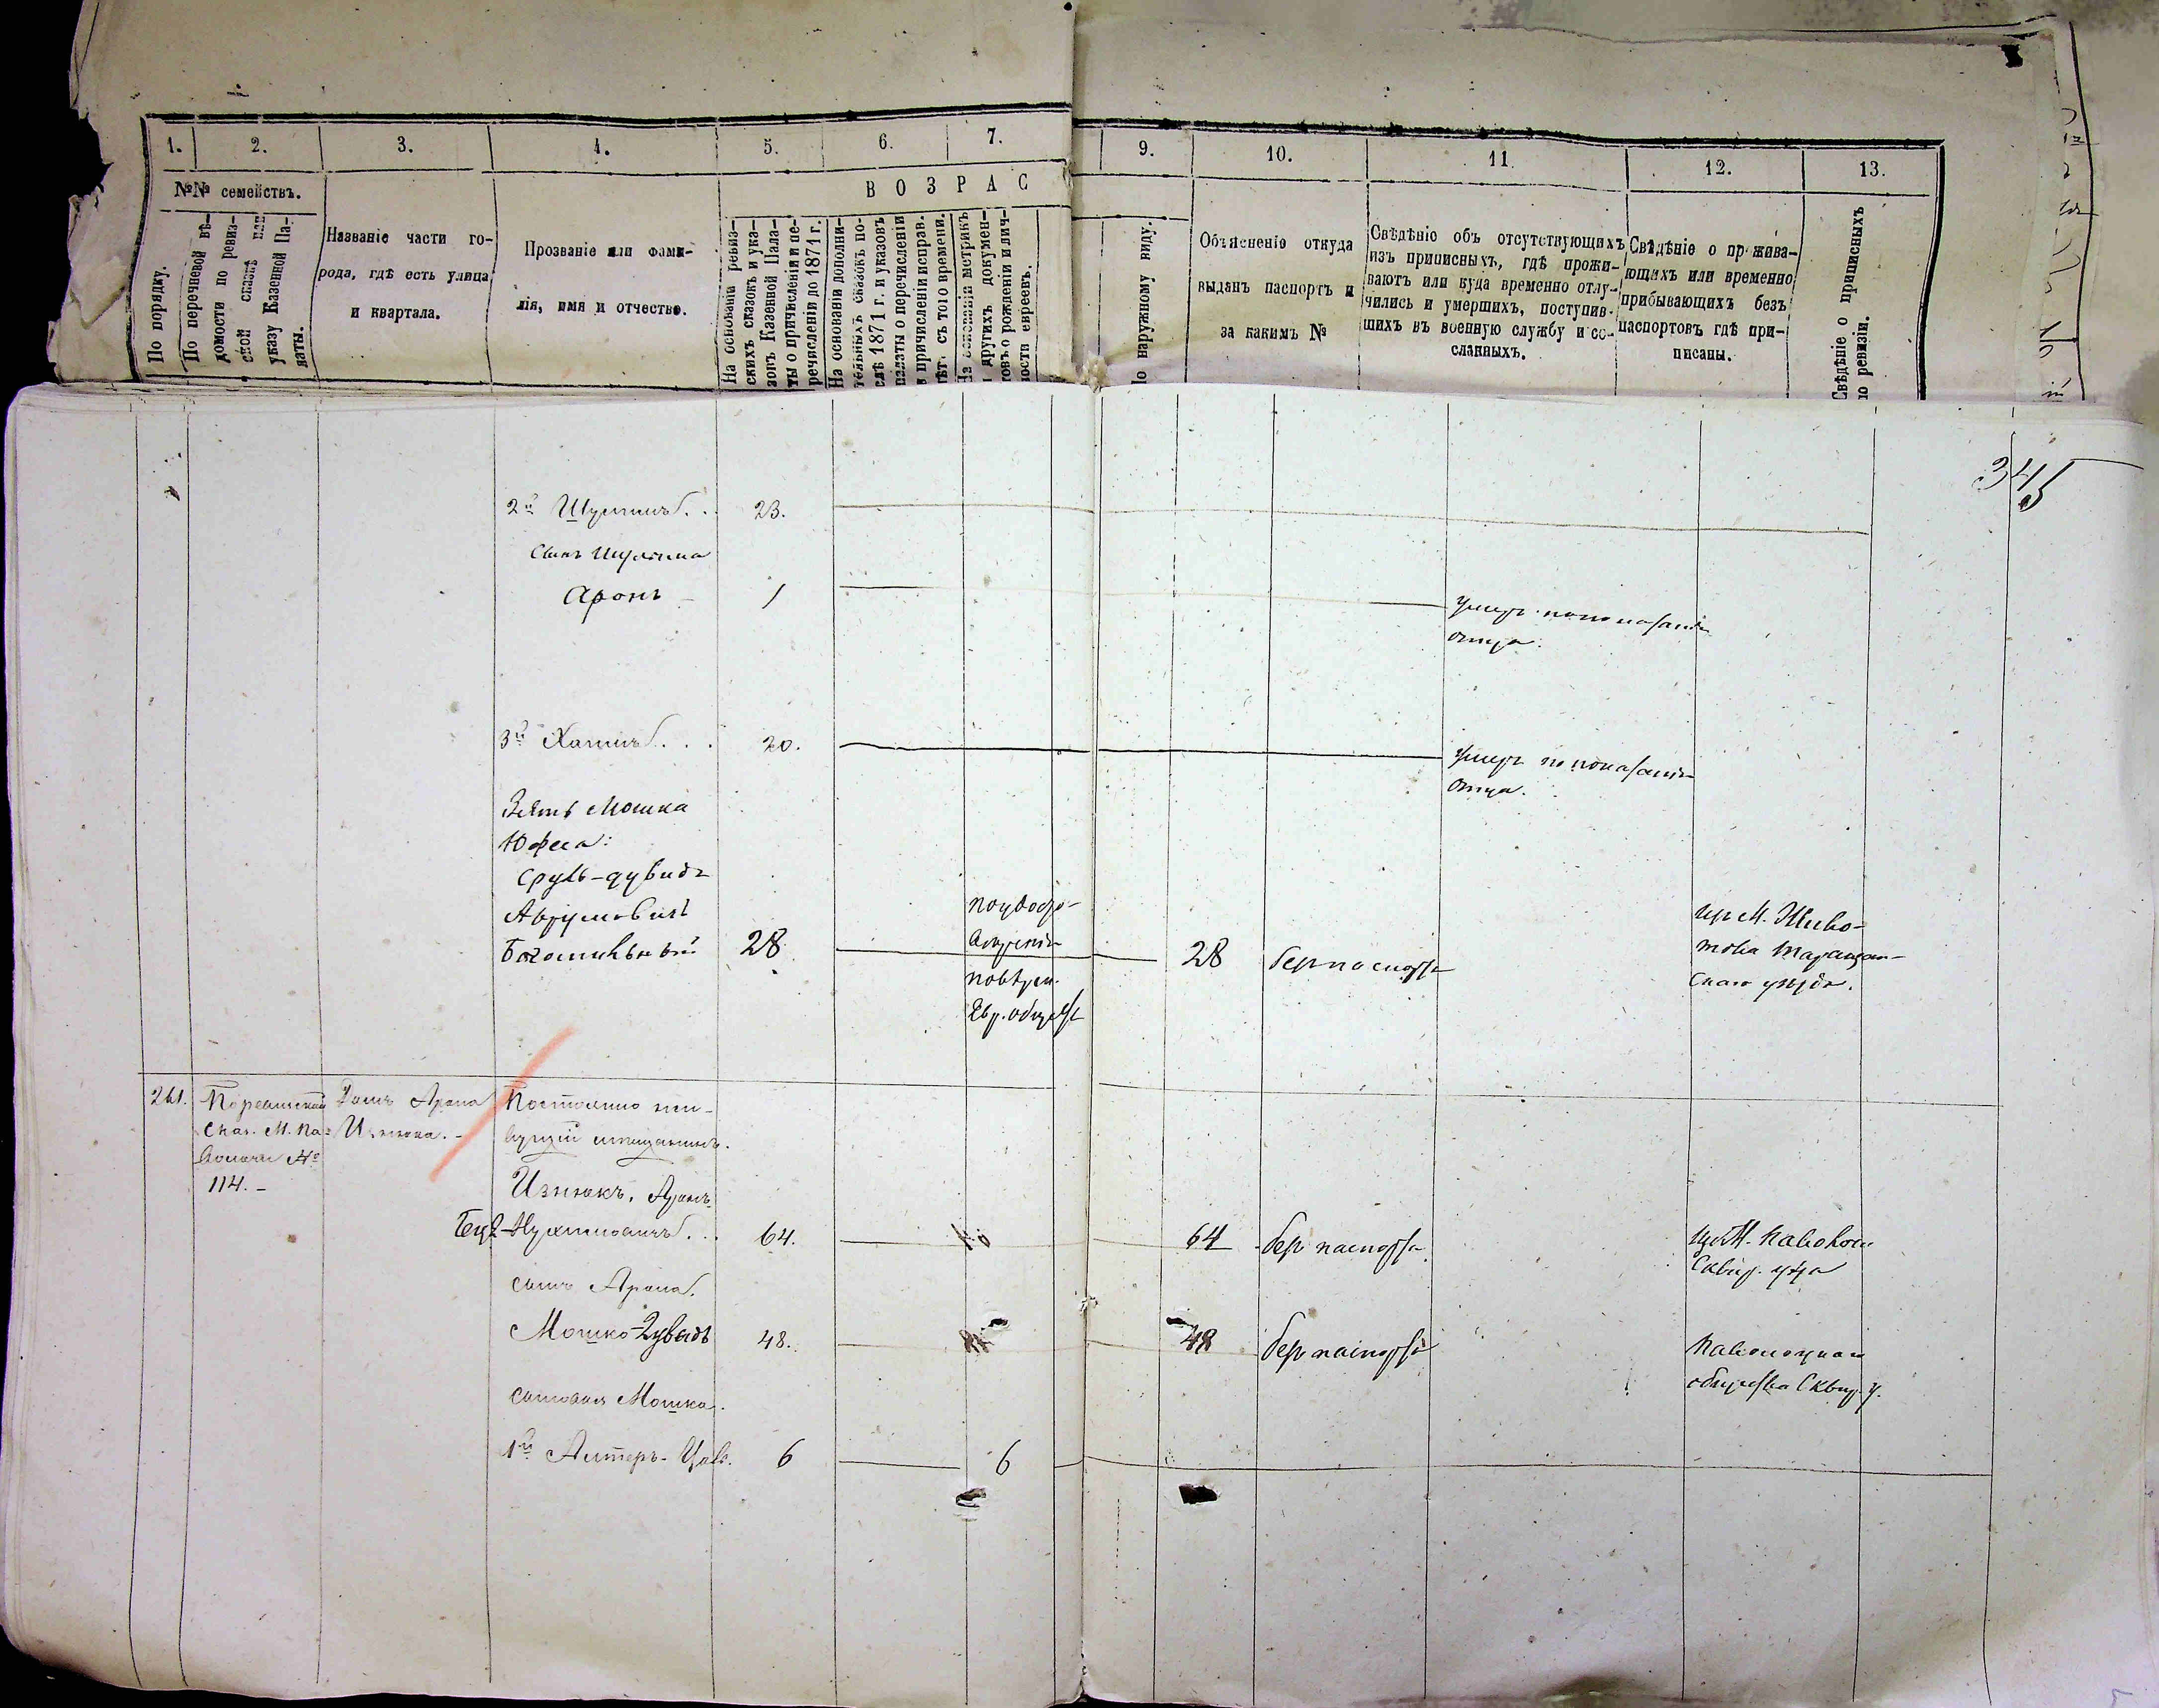 1.
2.
3.
4.
5.
6.
7.
9.
10.
11.
12.
13.
№№ семействъ.
По порядку.
По перечневой вѣ-
домости по ревиз-
ской сказкѣ или
указу Казенной Па-
латы.
Названіе части го-
рода, гдѣ есть улица
и квартала.
Прозваніе или фами-
лія, имя и отчество.
ВОЗРАС
На основаніи ревиз-
скихъ сказокъ и ука-
зовъ Казенной Пала-
ты о причисленіи и пе-
речисленіи до 1871 г.
На основаніи дополни-
тельныхъ сказокъ по-
слѣ 1871 г. и указовъ
палаты о перечисленіи
и причисленіи неправ.
лѣтъ съ того времени.
На основаніи метрикъ
и другихъ докумен-
товъ о рожденіи и лич-
ности евреевъ.
По наружному виду.
Объясненіе откуда
выданъ паспортъ и
за какимъ №
Свѣдѣніе объ отсутствующихъ
изъ приписныхъ, гдѣ прожи-
ваютъ или куда временно отлу-
чились и умершихъ, поступив-
шихъ въ военную службу и со-
сланныхъ.
Свѣдѣніе о прожива-
ющихъ или временно
прибывающихъ безъ
паспортовъ гдѣ при-
писаны.
Свѣдѣніе о приписныхъ
по ревизіи.
345
2й Шулимъ. . 23.
Сынъ Шулима
Аронъ 1
Умеръ по показанію
отца.
3й Хаимъ. . . 20.
Умеръ по показанію
отца.
Зять Мошка
Юфеа:
Сруль-Дувидъ
Аврумовичъ
28 28 безъ паспорта
изъ М. Живо-
това Таращан-
скаго уѣзда.
по удосто-
вѣренію
повѣрен.
Евр. обществ
261.
Поревизской
Сказ. М. Па-
волочи №
114. -
Домъ Арона
Изнюка. -
Постоянно жи-
вущій мѣщанинъ.
Изнюкъ, Аронъ
Берл-Нухимовичъ. . . 64. 64 безъ паспорта
изъ М. Паволочи
Сквир. уѣзда
сынъ Арона.
Мошко-Дувидъ 48. 48 безъ паспорта
Паволоцкаго
общества Сквир. у.
сыновья Мошка.
1й Алтеръ- 6 6